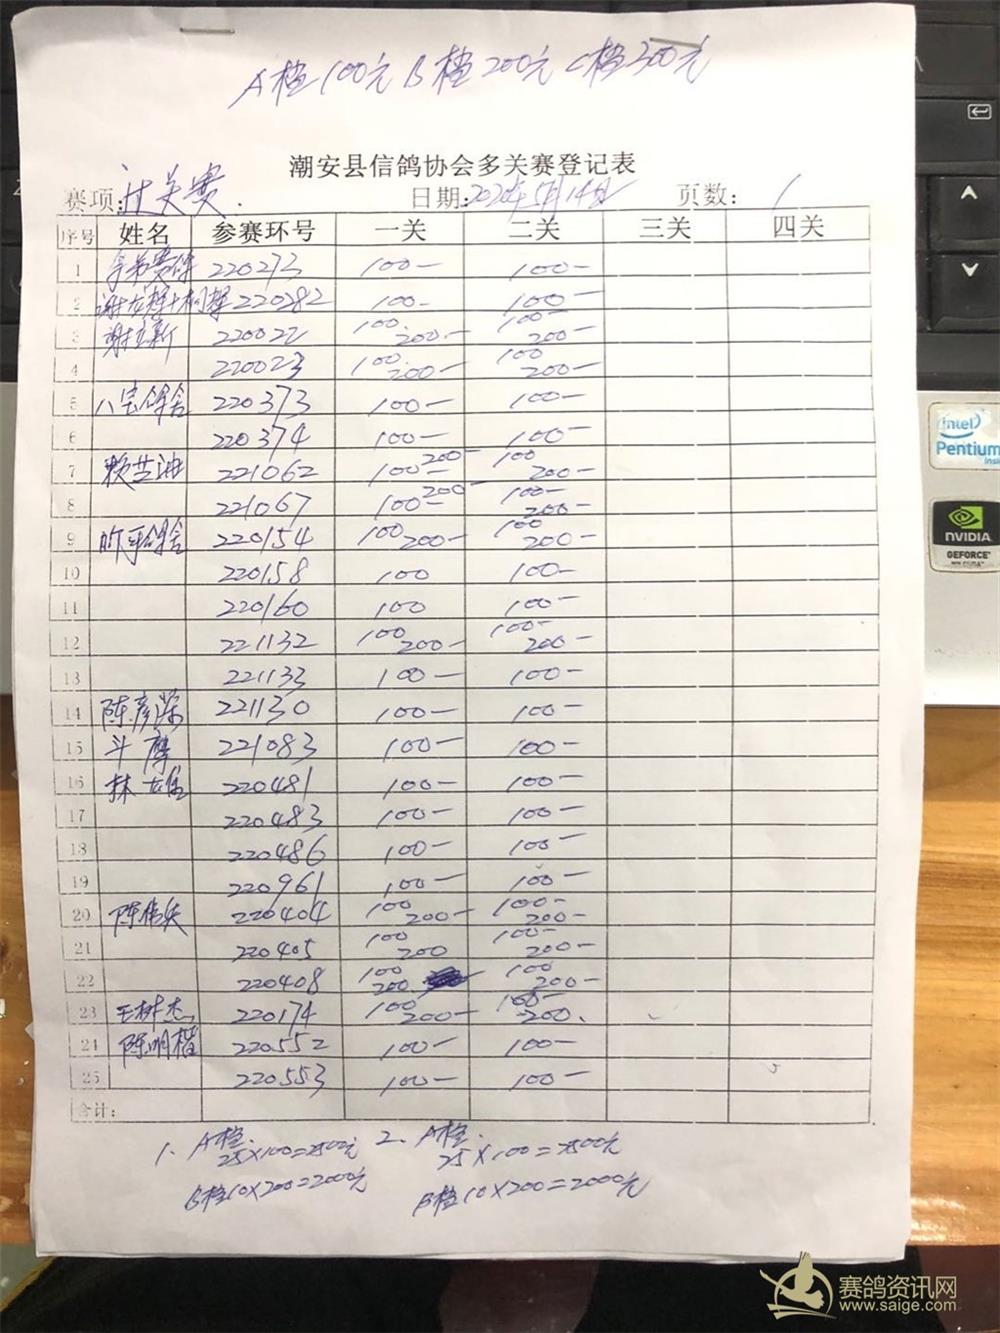 A档100元 B档200元 C档300元
潮安县信鸽协会多关赛登记表
赛项: 过关赛. 日期: 2020年5月14日 页数: 1
序号 姓名 参赛环号 一关 二关 三关 四关
1 220273 100- 100-
2 220282 100- 100-
3 谢立新 220022 100 200- 100- 200-
4 220023 100 200- 100 200-
5 八宝鸽舍 220373 100- 100-
6 220374 100- 100-
7 221062 100- 200- 100 200-
8 221067 100- 200- 100- 200-
9 鸽舍 220154 100 200- 100- 200-
10 220158 100 100-
11 220160 100 100-
12 221132 100 200- 100- 200-
13 221133 100- 100-
14 陈彦深 221130 100- 100-
15 斗摩 221083 100- 100-
16 林 220481 100- 100-
17 220483 100- 100-
18 220486 100- 100-
19 220961 100- 100-
20 陈伟 220404 100 200- 100- 200-
21 220405 100 200 100- 200-
22 220408 100 200 100 200-
23 王树杰 220174 100 200- 100- 200.
24 陈明楷 220552 100- 100-
25 220553 100- 100-
合计:
1、A档. 25×100=2500元 2、A档. 25×100=2500元
B档10×200=2000元 B档10×200=2000元
intel
Pentium
inside
NVIDIA
GEFORCE
赛鸽资讯网
www.saige.com